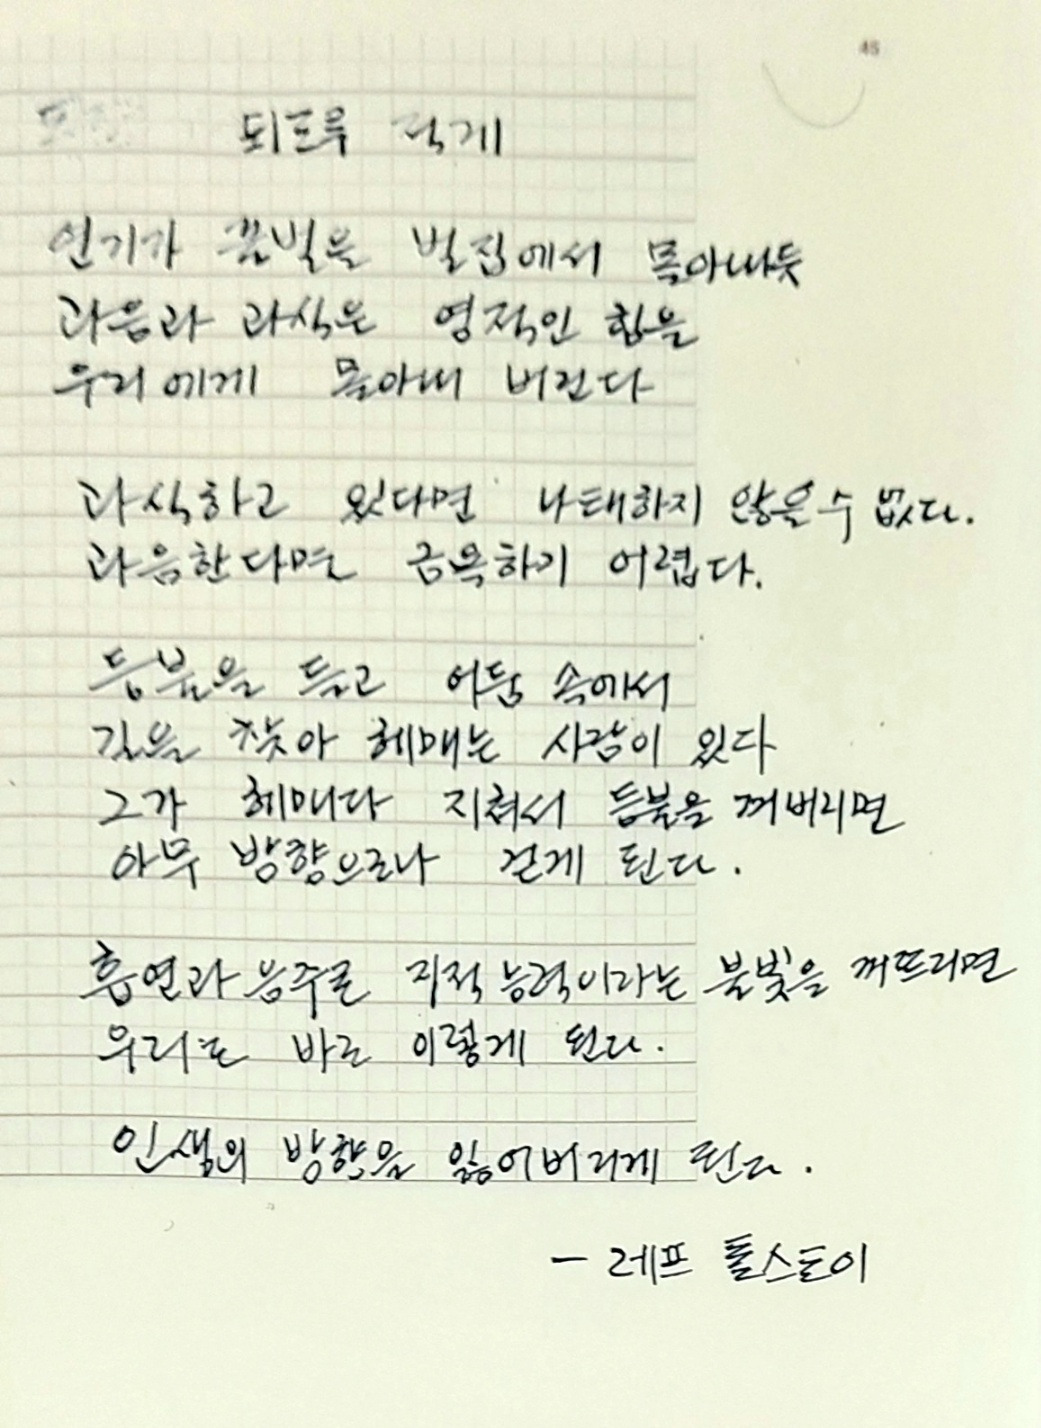 45
되도록 적게
연기가 꿀벌을 벌집에서 몰아내듯
과음과 과식은 영적인 힘을
우리에게 몰아내 버린다
과식하고 있다면 나태하지 않을 수 없다.
과음한다면 금욕하기 어렵다.
등불을 들고 어둠 속에서
길을 찾아 헤매는 사람이 있다
그가 헤매다 지쳐서 등불을 꺼버리면
아무 방향으로나 걷게 된다.
흡연과 음주로 지적 능력이라는 불빛을 꺼뜨리면
우리는 바로 이렇게 된다.
인생의 방향을 잃어버리게 된다.
- 레프 톨스토이